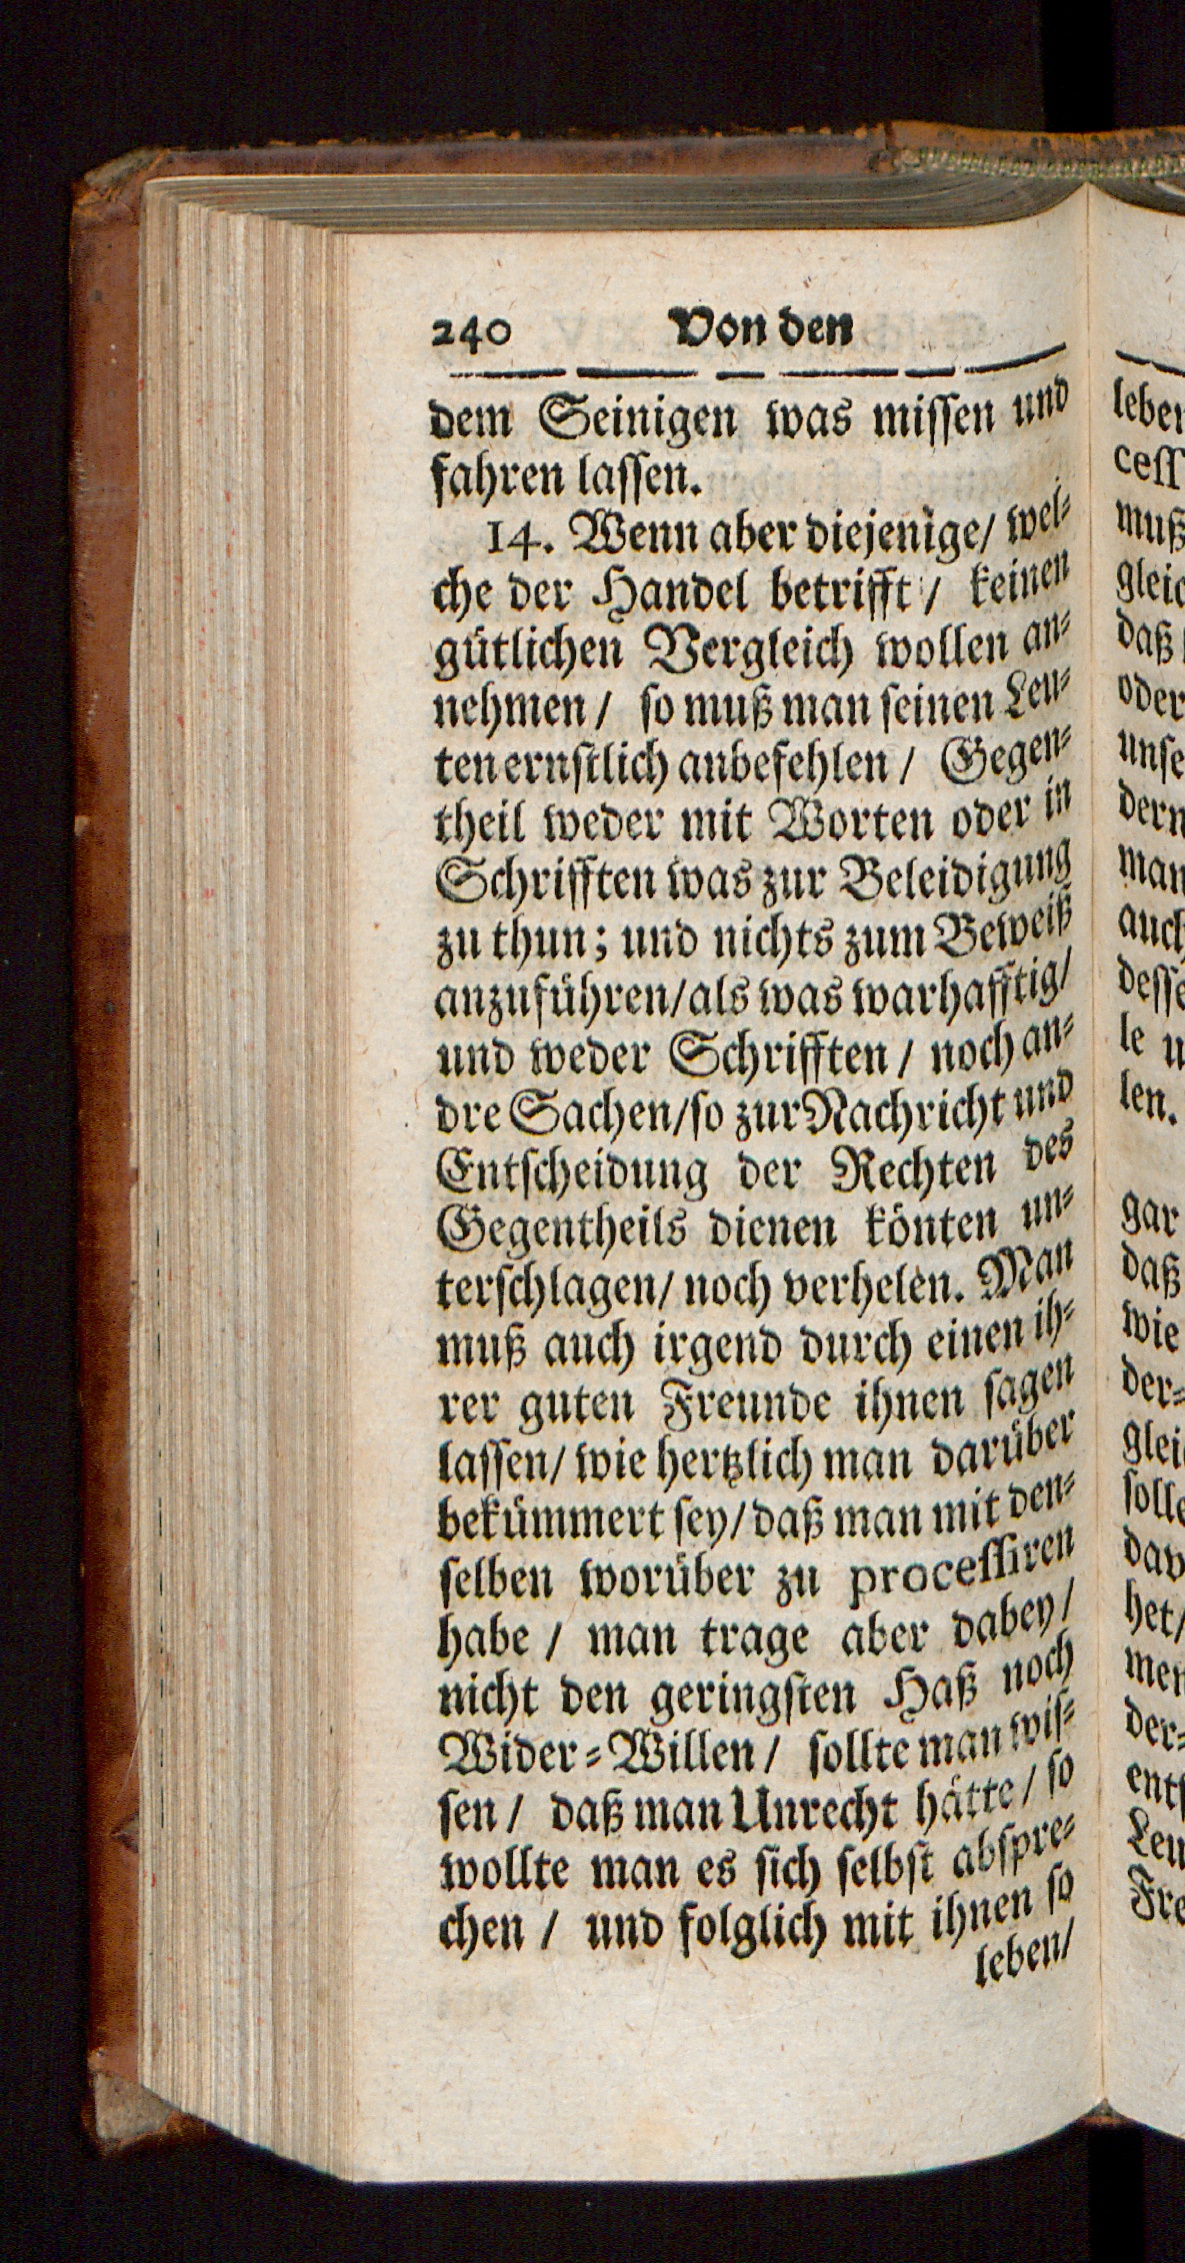 240 Von den
dem Seinigen was missen und
fahren lassen.
14. Wenn aber diejenige/ wel-
che der Handel betrifft / keinen
gütlichen Vergleich wollen an-
nehmen / so muß man seinen Leu-
ten ernstlich anbefehlen / Gegen-
theil weder mit Worten oder in
Schrifften was zur Beleidigung
zu thun; und nichts zum Beweiß
anzuführen/als was warhafftig/
und weder Schrifften / noch an-
dre Sachen/so zur Nachricht und
Entscheidung der Rechten des
Gegentheils dienen könten un-
terschlagen/ noch verhelen. Man
muß auch irgend durch einen ih-
rer guten Freunde ihnen sagen
lassen/ wie hertzlich man darüber
bekümmert sey/daß man mit den-
selben worüber zu processiren
habe / man trage aber dabey/
nicht den geringsten Haß noch
Wider-Willen / sollte man wis-
sen / daß man Unrecht hätte / so
wollte man es sich selbst abspre-
chen / und folglich mit ihnen so
leben/